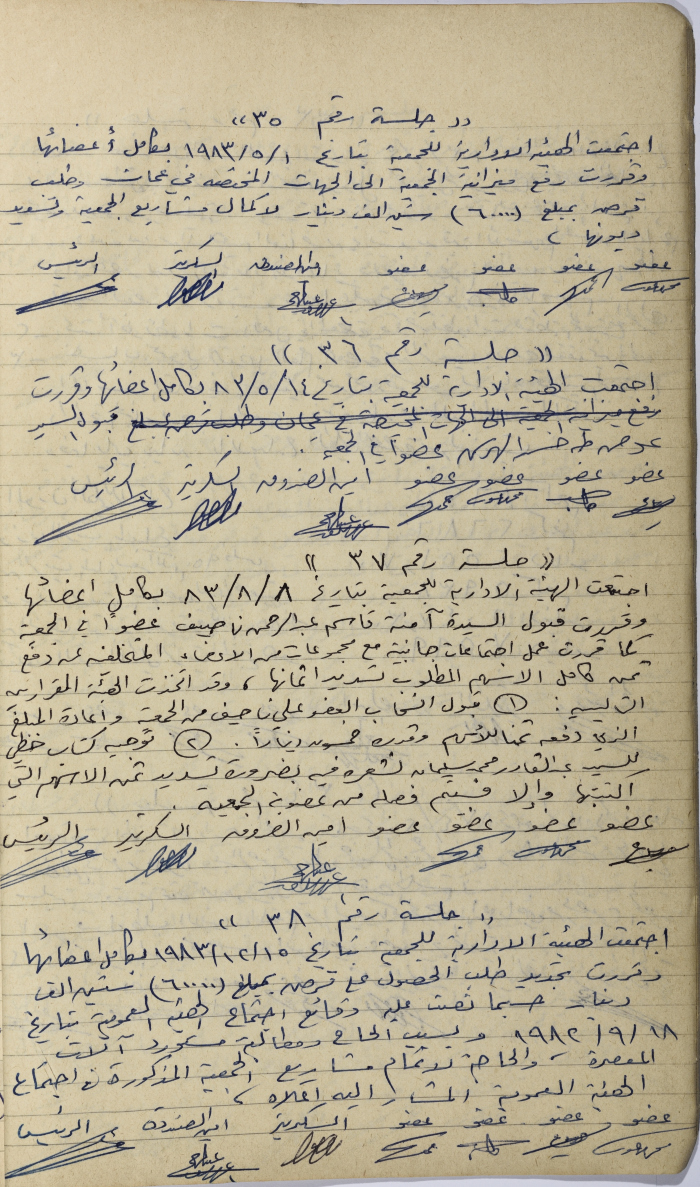 «جلسة رقم ٣٥»
اجتمعت الهيئة الادارية للجمعية بتاريخ ١٩٨٣/٥/١ بكامل أعضائها
وقررت رفع ميزانية الجمعية الى الجهات المختصه في عمان وطلب
قرض بمبلغ (٦٠٠٠٠) ستين الف دينار لاكمال مشاريع الجمعية وتسديد
ديونها ،
عضو عضو عضو عضو امين الصندوق السكرتير الرئيس
«جلسة رقم ٣٦»
اجتمعت الهيئة الادارية للجمعية بتاريخ ٨٣/٥/١٤ بكامل اعضائها وقررت
رفع ميزانية الجمعية الى الجهات المختصة في عمان وطلب قرض بمبلغ قبول السيد
عوض طه حسن عضواً في الجمعية .
عضو عضو عضو عضو امين الصندوق السكرتير الرئيس
«جلسة رقم ٣٧»
اجتمعت الهيئة الادارية للجمعية بتاريخ ٨٣/٨/٨ بكامل اعضائها
وقررت قبول السيدة آمنة قاسم عبد الرحمن ناصيف عضواً في الجمعية
كما قررت عمل اجتماعات جانبية مع مجموعات من الاعضاء المتخلفه عن دفع
ثمن كامل الاسهم المطلوب تسديد اثمانها ، وقد اتخذت الهيئة القرارين
التاليين : ① قبول انسحاب العضو علي ناصيف من الجمعية واعادة المبلغ
الذي دفعه ثمناً للأسهم وقدره خمسون ديناراً . ② توجيه كتاب خطي
للسيد عبد القادر محمد سليمان نشعره فيه بضرورة تسديد ثمن الاسهم التي
اكتتبها وإلا فسيتم فصله من عضوية الجمعيه .
عضو عضو عضو عضو امين الصندوق السكرتير الرئيس
«جلسة رقم ٣٨»
اجتمعت الهيئة الادارية للجمعية بتاريخ ١٩٨٣/١٢/١٥ بكامل اعضائها
وقررت تجديد طلب الحصول على قرض بمبلغ (٦٠٠٠٠) ستين الف
دينار حسبما نصت عليه وقائع اجتماع الهيئة العمومية بتاريخ
١٩٨٢/٩/١٨ وبسبب الحاح ومطالبة مستورد آلات
المعصرة ، والحاجة لاتمام مشاريع الجمعية المذكورة في اجتماع
الهيئة العمومية المشار اليه اعلاه ،
عضو عضو عضو عضو السكرتير امين الصندوق الرئيس